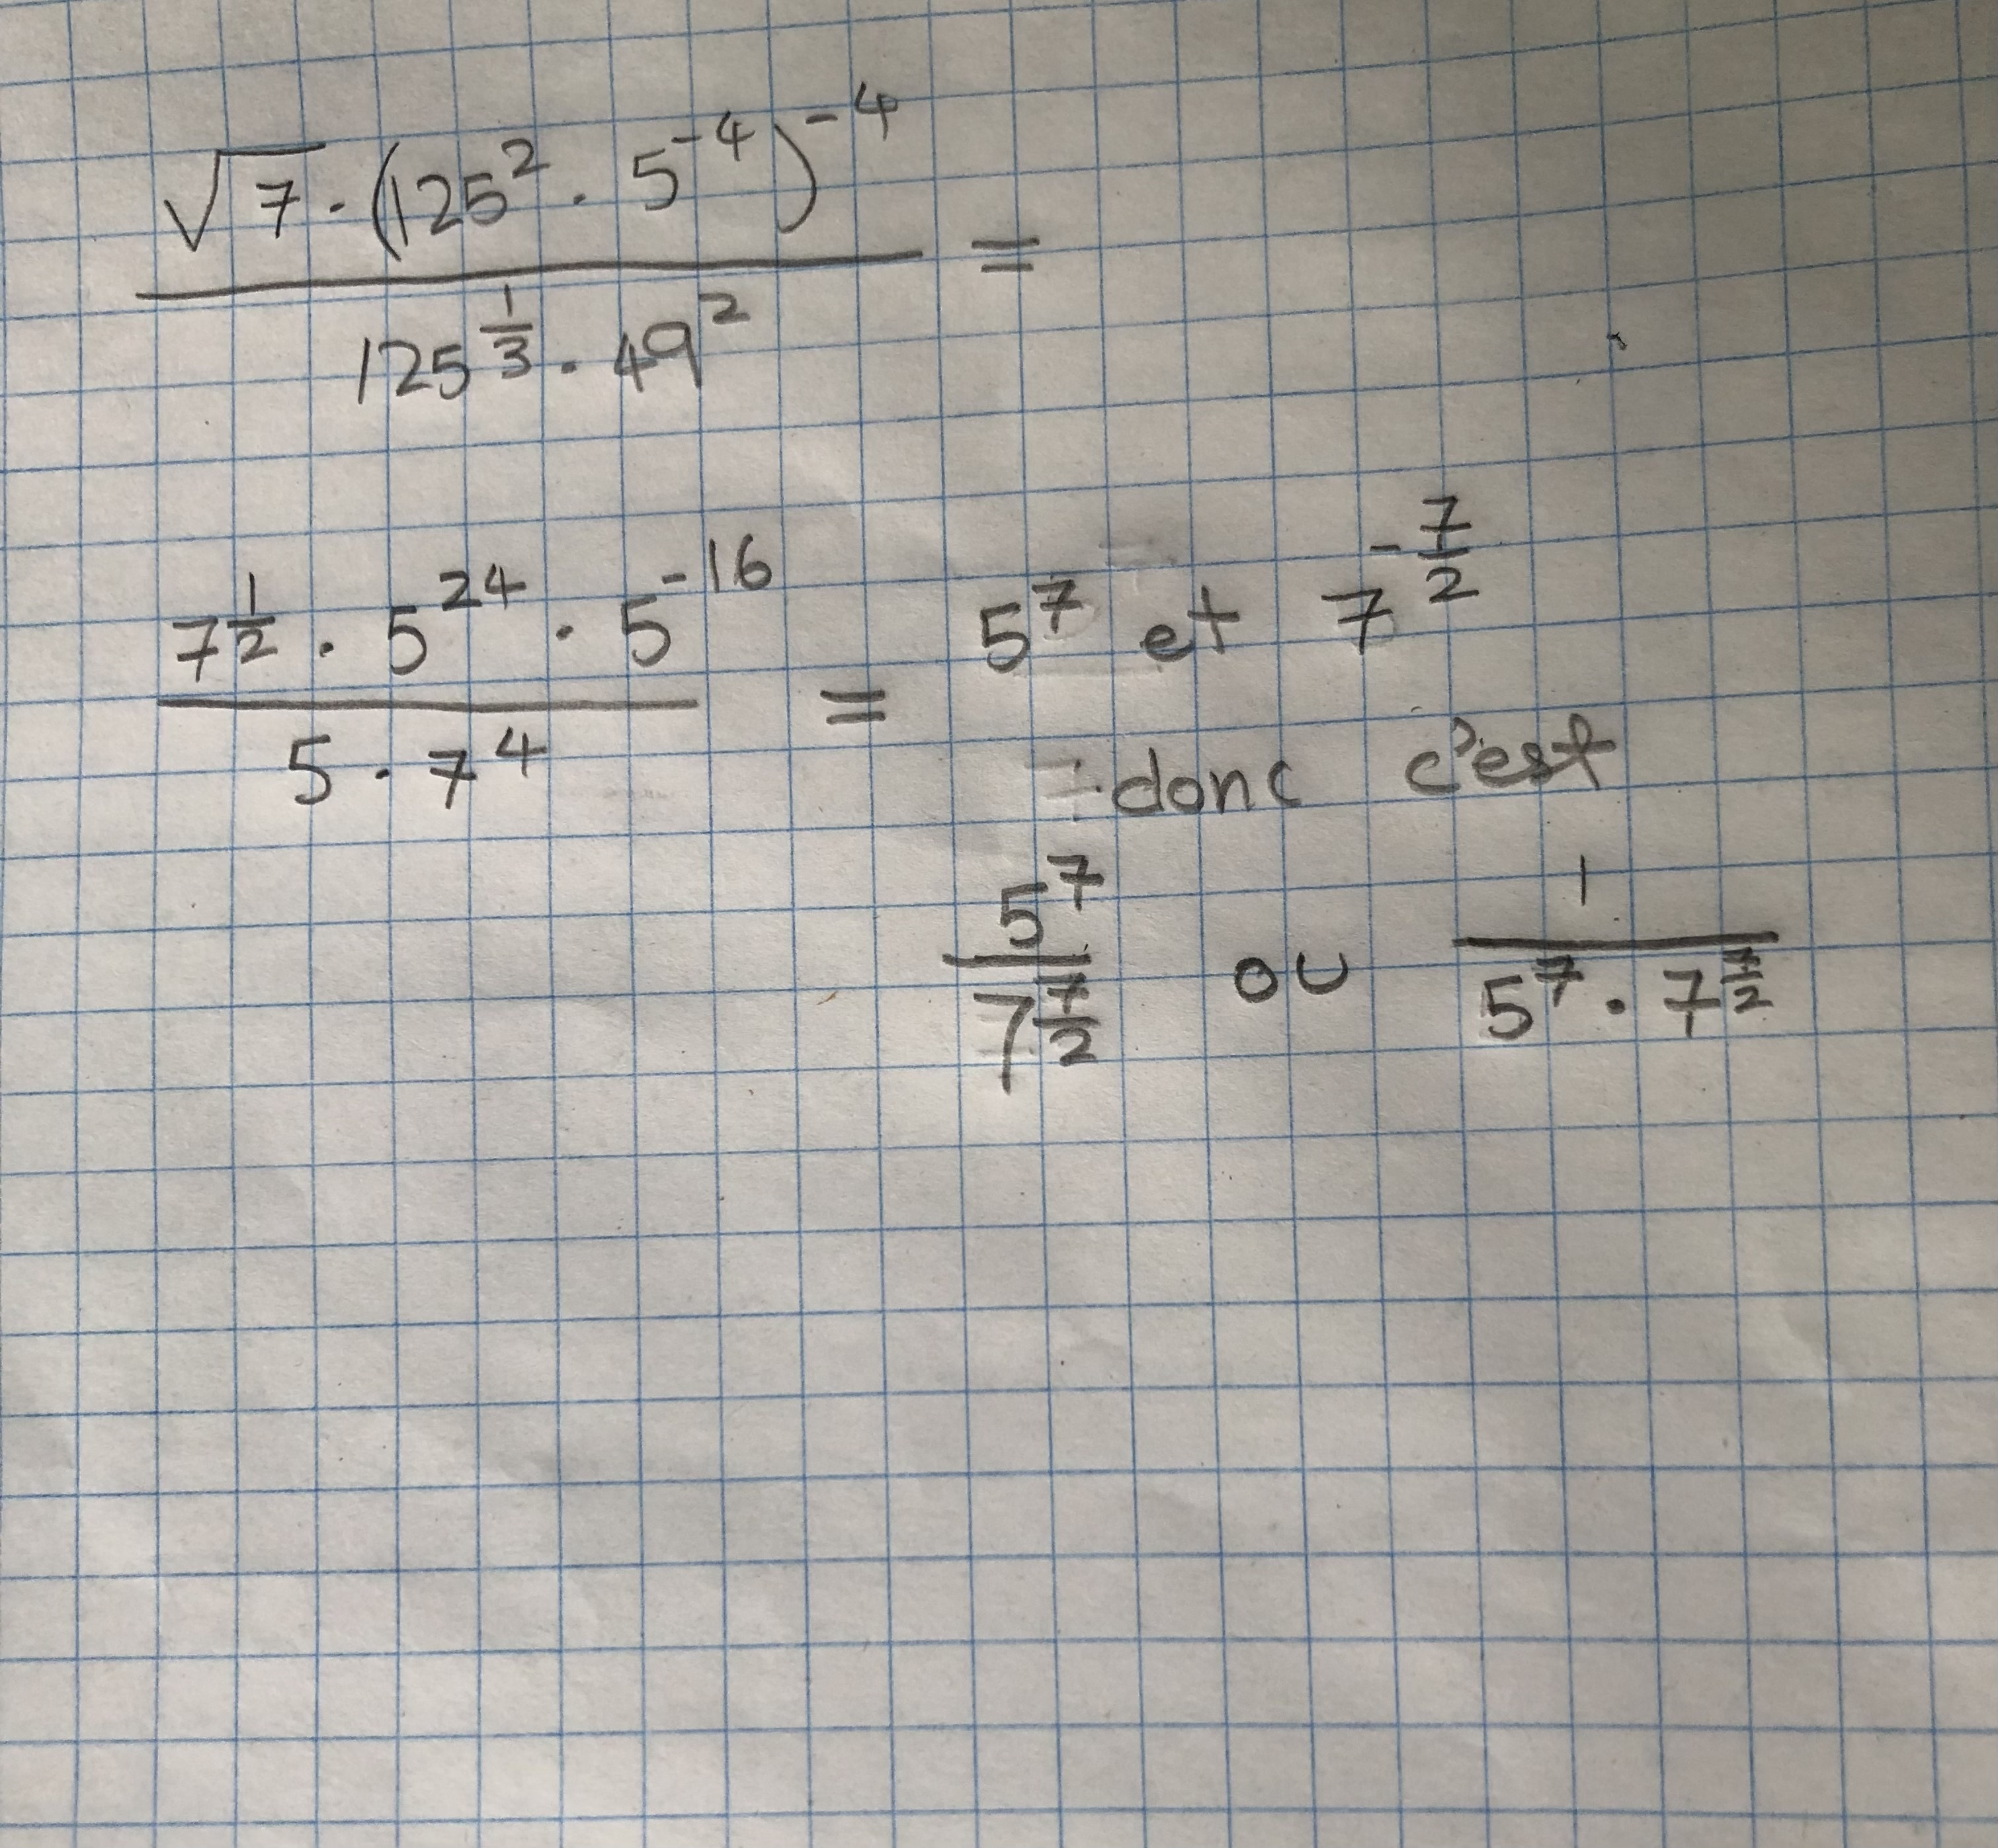 √7 · (125² · 5⁻⁴)⁻⁴ / 125^(1/3) · 49² =
7^(1/2) · 5²⁴ · 5⁻¹⁶ / 5 · 7⁴ = 5⁷ et 7^(-7/2)
donc c'est
5⁷ / 7^(7/2) ou 1 / 5⁷ · 7^(7/2)